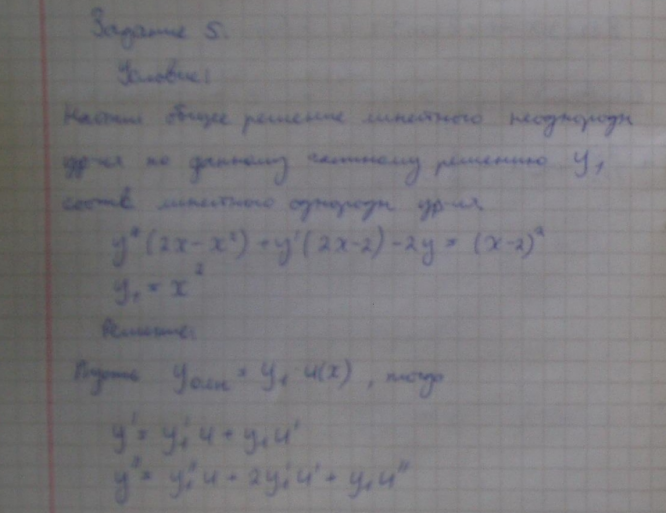 Задание 5.
Условие:
Найти общее решение линейного неоднородн
ур-ия по данному частному решению y₁
соотв линейного однородн ур-ия.
y"(2x-x²)+y'(2x-2)-2y=(x-2)²
y₁=x²
Решение:
Пусть y_олн=y₁·u(x), тогда
y'=y₁'u+y₁u'
y"=y₁"u+2y₁'u'+y₁u"